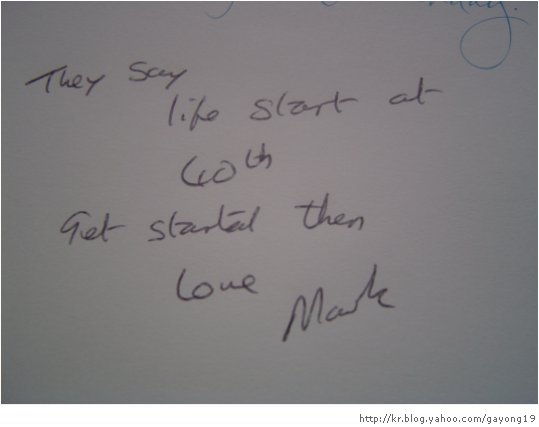 They say
life start at
40th
Get started then
Love
Mark
http://kr.blog.yahoo.com/gayong19